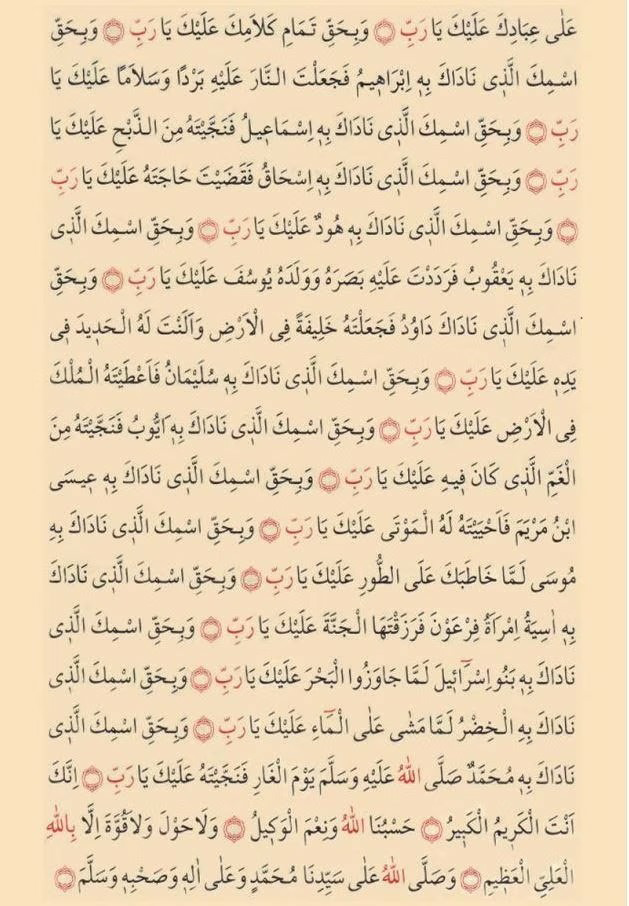 عَلٰى عِبَادِكَ عَلَيْكَ يَا رَبِّ ۝ وَبِحَقِّ تَمَامِ كَلَامِكَ عَلَيْكَ يَا رَبِّ ۝ وَبِحَقِّ
اسْمِكَ الَّذِى نَادَاكَ بِهِ اِبْرَاهِيمُ فَجَعَلْتَ النَّارَ عَلَيْهِ بَرْدًا وَسَلَامًا عَلَيْكَ يَا
رَبِّ ۝ وَبِحَقِّ اسْمِكَ الَّذِى نَادَاكَ بِهِ اِسْمَاعِيلُ فَنَجَّيْتَهُ مِنَ الذَّبْحِ عَلَيْكَ يَا
رَبِّ ۝ وَبِحَقِّ اسْمِكَ الَّذِى نَادَاكَ بِهِ اِسْحَاقُ فَقَضَيْتَ حَاجَتَهُ عَلَيْكَ يَا رَبِّ
۝ وَبِحَقِّ اسْمِكَ الَّذِى نَادَاكَ بِهِ هُودٌ عَلَيْكَ يَا رَبِّ ۝ وَبِحَقِّ اسْمِكَ الَّذِى
نَادَاكَ بِهِ يَعْقُوبُ فَرَدَدْتَ عَلَيْهِ بَصَرَهُ وَوَلَدَهُ يُوسُفَ عَلَيْكَ يَا رَبِّ ۝ وَبِحَقِّ
اسْمِكَ الَّذِى نَادَاكَ دَاوُدُ فَجَعَلْتَهُ خَلِيفَةً فِى الْاَرْضِ وَاَلَنْتَ لَهُ الْحَدِيدَ فِى
يَدِهِ عَلَيْكَ يَا رَبِّ ۝ وَبِحَقِّ اسْمِكَ الَّذِى نَادَاكَ بِهِ سُلَيْمَانُ فَاَعْطَيْتَهُ الْمُلْكَ
فِى الْاَرْضِ عَلَيْكَ يَا رَبِّ ۝ وَبِحَقِّ اسْمِكَ الَّذِى نَادَاكَ بِهِ اَيُّوبُ فَنَجَّيْتَهُ مِنَ
الْغَمِّ الَّذِى كَانَ فِيهِ عَلَيْكَ يَا رَبِّ ۝ وَبِحَقِّ اسْمِكَ الَّذِى نَادَاكَ بِهِ عِيسَى
ابْنُ مَرْيَمَ فَاَحْيَيْتَهُ لَهُ الْمَوْتَى عَلَيْكَ يَا رَبِّ ۝ وَبِحَقِّ اسْمِكَ الَّذِى نَادَاكَ بِهِ
مُوسَى لَمَّا خَاطَبَكَ عَلَى الطُّورِ عَلَيْكَ يَا رَبِّ ۝ وَبِحَقِّ اسْمِكَ الَّذِى نَادَاكَ
بِهِ اٰسِيَةُ اِمْرَاَةُ فِرْعَوْنَ فَرَزَقْتَهَا الْجَنَّةَ عَلَيْكَ يَا رَبِّ ۝ وَبِحَقِّ اسْمِكَ الَّذِى
نَادَاكَ بِهِ بَنُو اِسْرَٓائِيلَ لَمَّا جَاوَزُوا الْبَحْرَ عَلَيْكَ يَا رَبِّ ۝ وَبِحَقِّ اسْمِكَ الَّذِى
نَادَاكَ بِهِ الْخِضْرُ لَمَّا مَشٰى عَلَى الْمَٓاءِ عَلَيْكَ يَا رَبِّ ۝ وَبِحَقِّ اسْمِكَ الَّذِى
نَادَاكَ بِهِ مُحَمَّدٌ صَلَّى اللهُ عَلَيْهِ وَسَلَّمَ يَوْمَ الْغَارِ فَنَجَّيْتَهُ عَلَيْكَ يَا رَبِّ ۝ اِنَّكَ
اَنْتَ الْكَرِيمُ الْكَبِيرُ ۝ حَسْبُنَا اللهُ وَنِعْمَ الْوَكِيلُ ۝ وَلَا حَوْلَ وَلَا قُوَّةَ اِلَّا بِاللهِ
الْعَلِىِّ الْعَظِيمِ ۝ وَصَلَّى اللهُ عَلٰى سَيِّدِنَا مُحَمَّدٍ وَعَلٰى اٰلِهِ وَصَحْبِهِ وَسَلَّمَ ۝